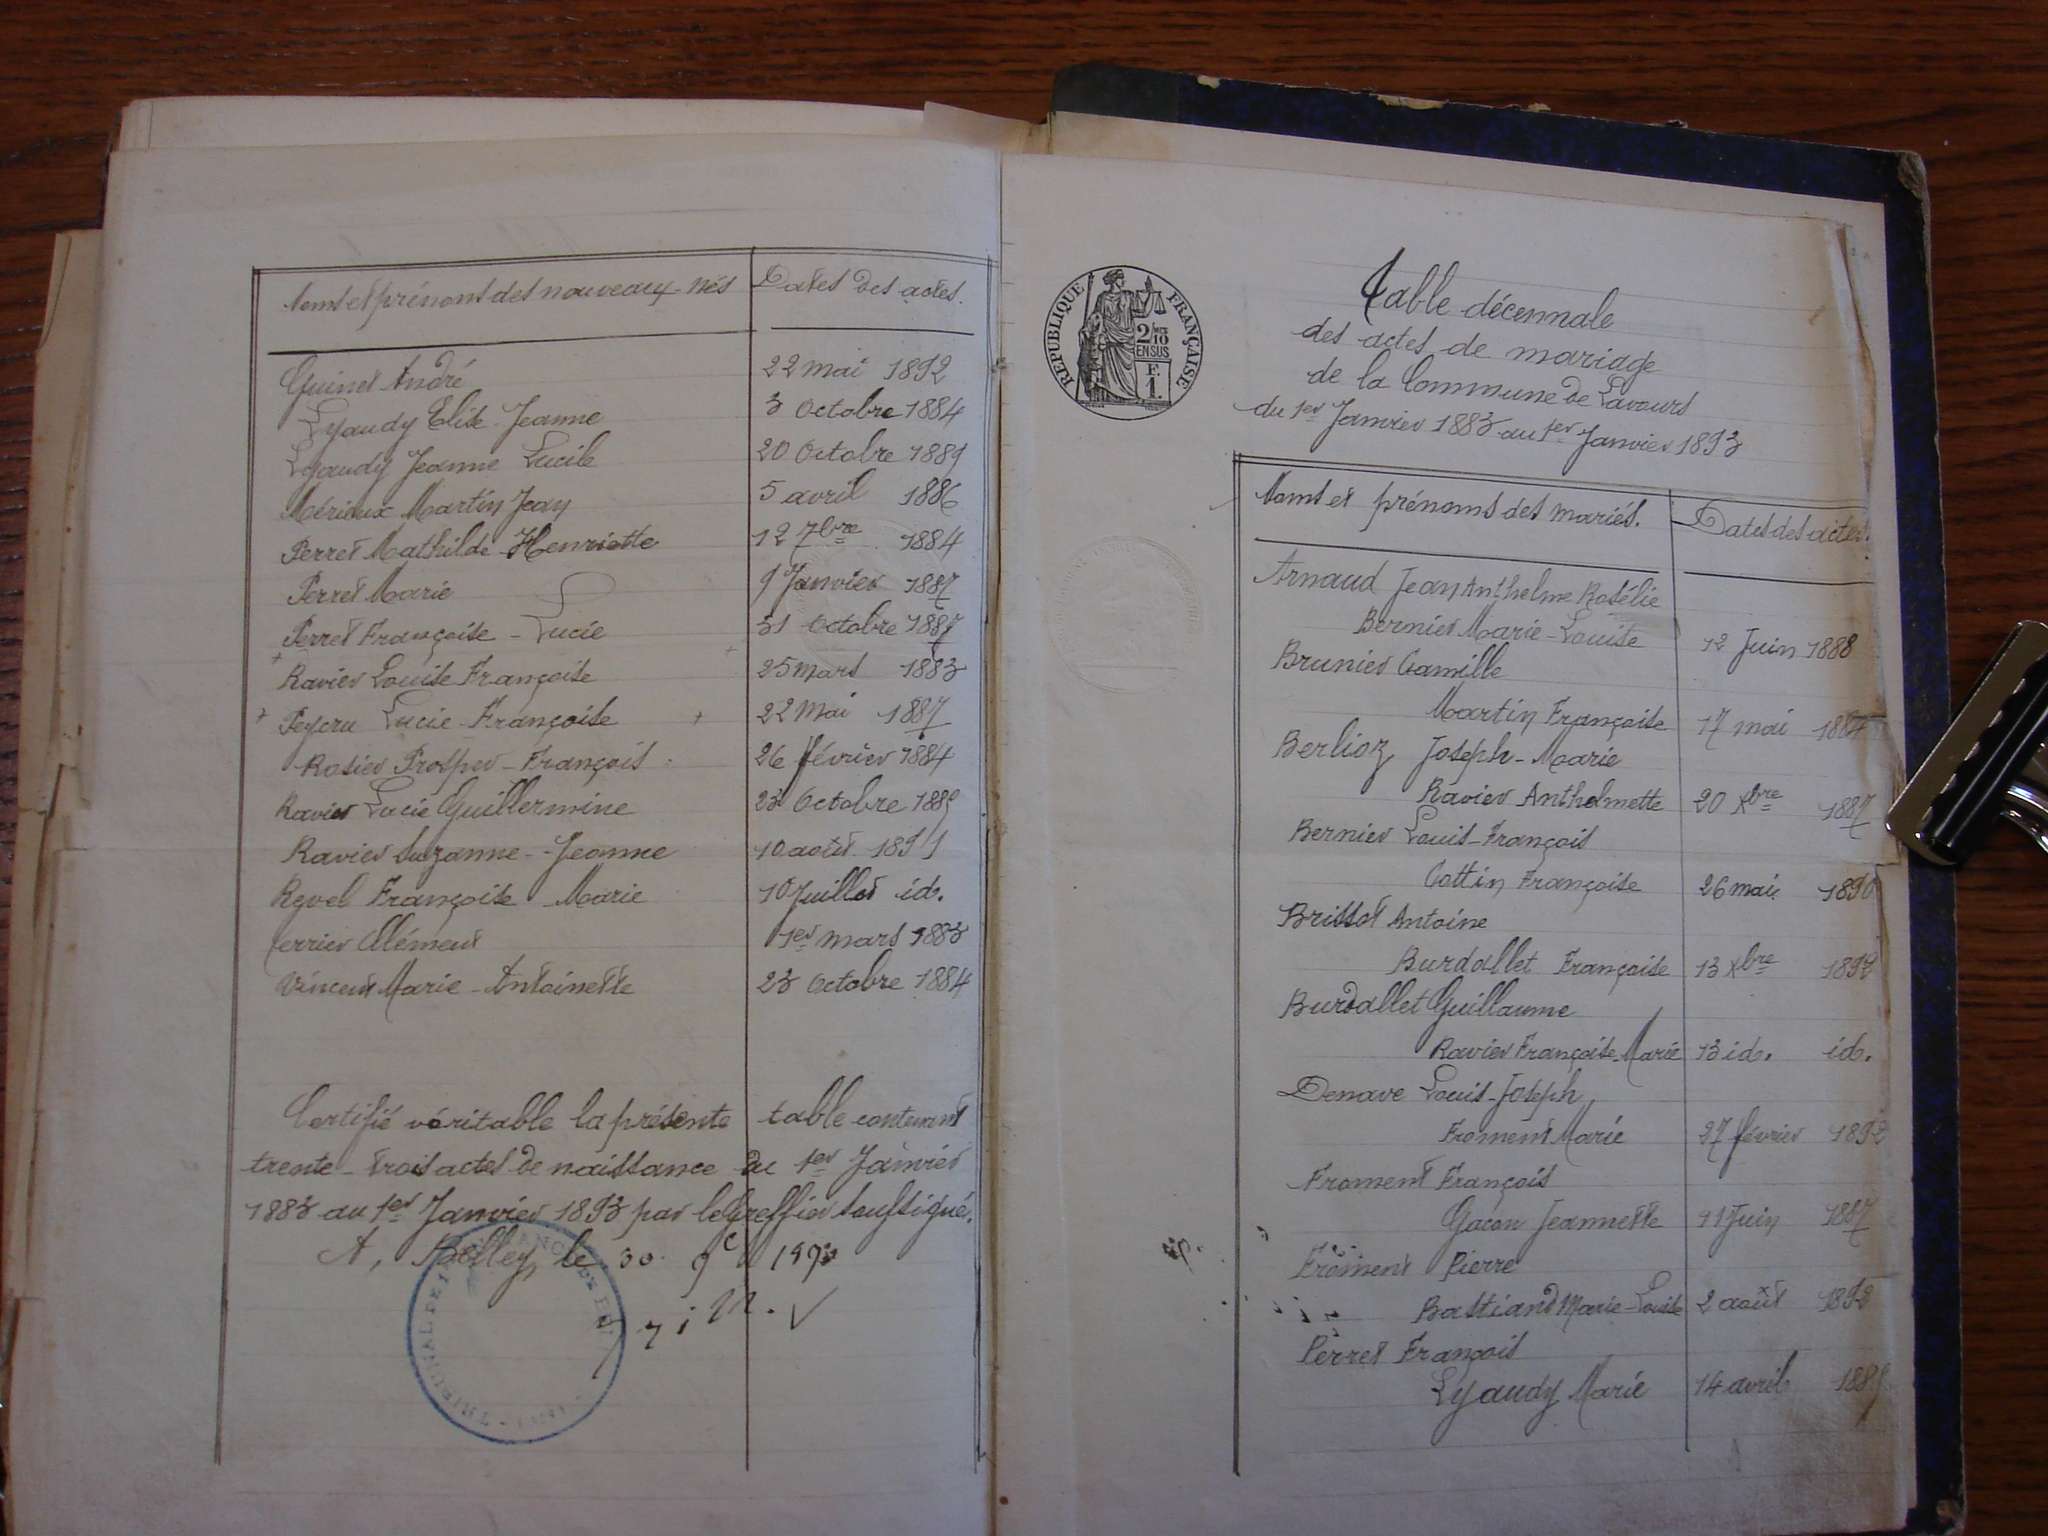 Noms et prénoms des nouveaux-nés Dates des actes.
Guinet André 22 mai 1892
Lyaudy Elise Jeanne 3 Octobre 1884
Lyaudy Jeanne Lucile 20 Octobre 1889
Mérieux Martin Jean 5 avril 1886
Perret Mathilde Henriette 12 7bre 1884
Perret Marie 9 Janvier 1887
Perret Françoise-Lucie 31 Octobre 1887
Ravier Louise Françoise 25 mars 1883
Peycru Lucie-Françoise 22 Mai 1887
Rosier Prosper-François 26 février 1884
Ravier Lucie Guillermine 23 Octobre 1889
Ravier Suzanne-Jeanne 10 août 1891
Revel Françoise Marie 10 Juillet id.
Clément 1er mars 1883
Vincent Marie-Antoinette 23 Octobre 1884
Certifié véritable la présente table contenant
trente-trois actes de naissance du 1er Janvier
1883 au 1er Janvier 1893 par le Greffier soussigné.
A, Belley, le 30
RÉPUBLIQUE FRANÇAISE
2/10
EN SUS
F.
1.
Table décennale
des actes de mariage
de la Commune de Lavours
du 1er Janvier 1883 au 1er Janvier 1893
Noms et prénoms des mariés. Dates des actes.
Arnaud Jean Anthelme Rosélie
Bernier Marie-Louise 12 Juin 1888
Brunier Camille
Martin Françoise 17 mai 1884
Berlioz Joseph-Marie
Ravier Anthelmette 20 Xbre 1887
Bernier Louis-François
Cottin Françoise 26 mai 1890
Brissot Antoine
Burdallet Françoise 13 Xbre 1892
Burdallet Guillaume
Ravier Françoise-Marie 13 id. id.
Denave Louis-Joseph
Froment Marie 27 février 1892
Froment François
Gacon Jeannette 11 Juin 1887
Froment Pierre
Bastiand Marie-Louise 2 août 1892
Perret François
Lyaudy Marie 14 avril 1889